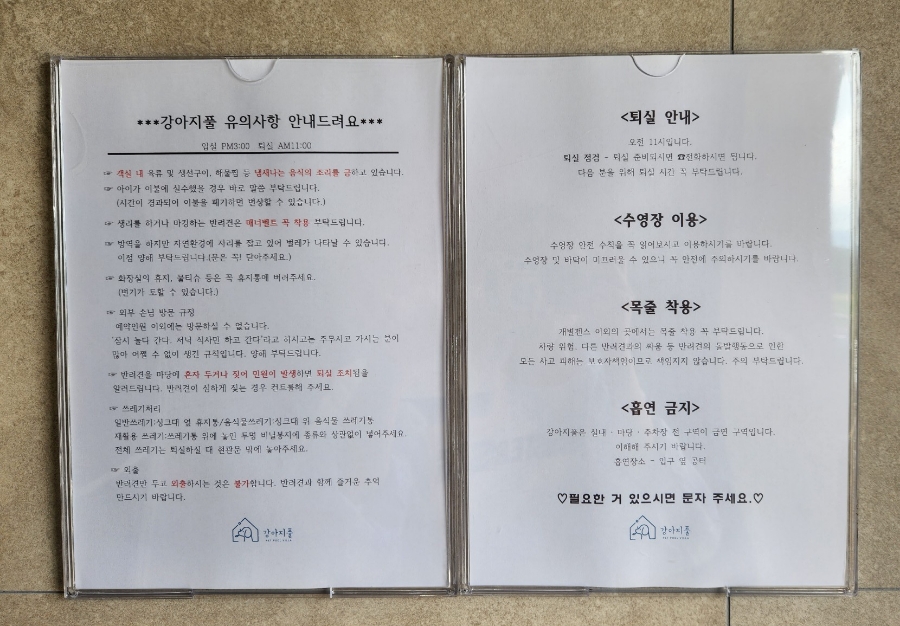 ***강아지풀 유의사항 안내드려요***
입실 PM3:00 퇴실 AM11:00
☞ 객실 내 육류 및 생선구이, 해물찜 등 냄새나는 음식의 조리를 금하고 있습니다.
☞ 아이가 이불에 실수했을 경우 바로 말씀 부탁드립니다.
(시간이 경과되어 이불을 폐기하면 변상할 수 있습니다.)
☞ 생리를 하거나 마킹하는 반려견은 매너벨트 꼭 착용 부탁드립니다.
☞ 방역을 하지만 자연환경에 자리를 잡고 있어 벌레가 나타날 수 있습니다.
이점 양해 부탁드립니다.(문은 꼭! 닫아주세요.)
☞ 화장실의 휴지, 물티슈 등은 꼭 휴지통에 버려주세요.
(변기가 막힐 수 있습니다.)
☞ 외부 손님 방문 규정
예약인원 이외에는 방문하실 수 없습니다.
'잠시 놀다 간다. 저녁 식사만 하고 간다'라고 하시고는 주무시고 가시는 분이
많아 어쩔 수 없이 생긴 규칙입니다. 양해 부탁드립니다.
☞ 반려견을 마당에 혼자 두거나 짖어 민원이 발생하면 퇴실 조치됨을
알려드립니다. 반려견이 심하게 짖는 경우 컨트롤해 주세요.
☞ 쓰레기처리
일반쓰레기:싱크대 옆 휴지통/음식물쓰레기:싱크대 위 음식물 쓰레기통
재활용 쓰레기:쓰레기통 위에 놓인 투명 비닐봉지에 종류와 상관없이 넣어주세요.
전체 쓰레기는 퇴실하실 때 현관문 밖에 놓아주세요.
☞ 외출
반려견만 두고 외출하시는 것은 불가합니다. 반려견과 함께 즐거운 추억
만드시기 바랍니다.
강아지풀
<퇴실 안내>
오전 11시입니다.
퇴실 점검 - 퇴실 준비되시면 ☎전화하시면 됩니다.
다음 분을 위해 퇴실 시간 꼭 부탁드립니다.
<수영장 이용>
수영장 안전 수칙을 꼭 읽어보시고 이용하시기를 바랍니다.
수영장 및 바닥이 미끄러울 수 있으니 꼭 안전에 주의하시기를 바랍니다.
<목줄 착용>
개별펜스 이외의 곳에서는 목줄 착용 꼭 부탁드립니다.
차량 위험, 다른 반려견과의 싸움 등 반려견의 돌발행동으로 인한
모든 사고 피해는 보호자책임이므로 책임지지 않습니다. 주의 부탁드립니다.
<흡연 금지>
강아지풀은 실내 · 마당 · 주차장 전 구역이 금연 구역입니다.
이해해 주시기 바랍니다.
흡연장소 - 입구 옆 공터
♡필요한 거 있으시면 문자 주세요.♡
강아지풀